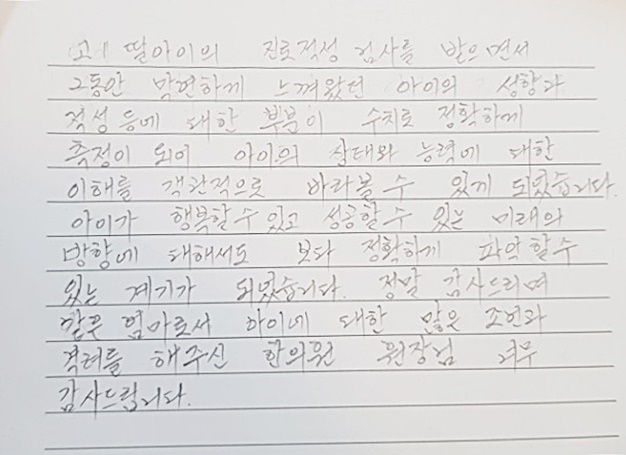 고1 딸아이의 진로적성 검사를 받으면서
그동안 막연하게 느껴왔던 아이의 성향과
적성 등에 대한 부분이 수치로 정확하게
측정이 되어 아이의 상태와 능력에 대한
이해를 객관적으로 바라볼 수 있게 되었습니다.
아이가 행복할 수 있고 성공할 수 있는 미래의
방향에 대해서도 보다 정확하게 파악할 수
있는 계기가 되었습니다. 정말 감사드리며
같은 엄마로서 아이에 대한 많은 조언과
격려를 해주신 한의원 원장님 너무
감사드립니다.